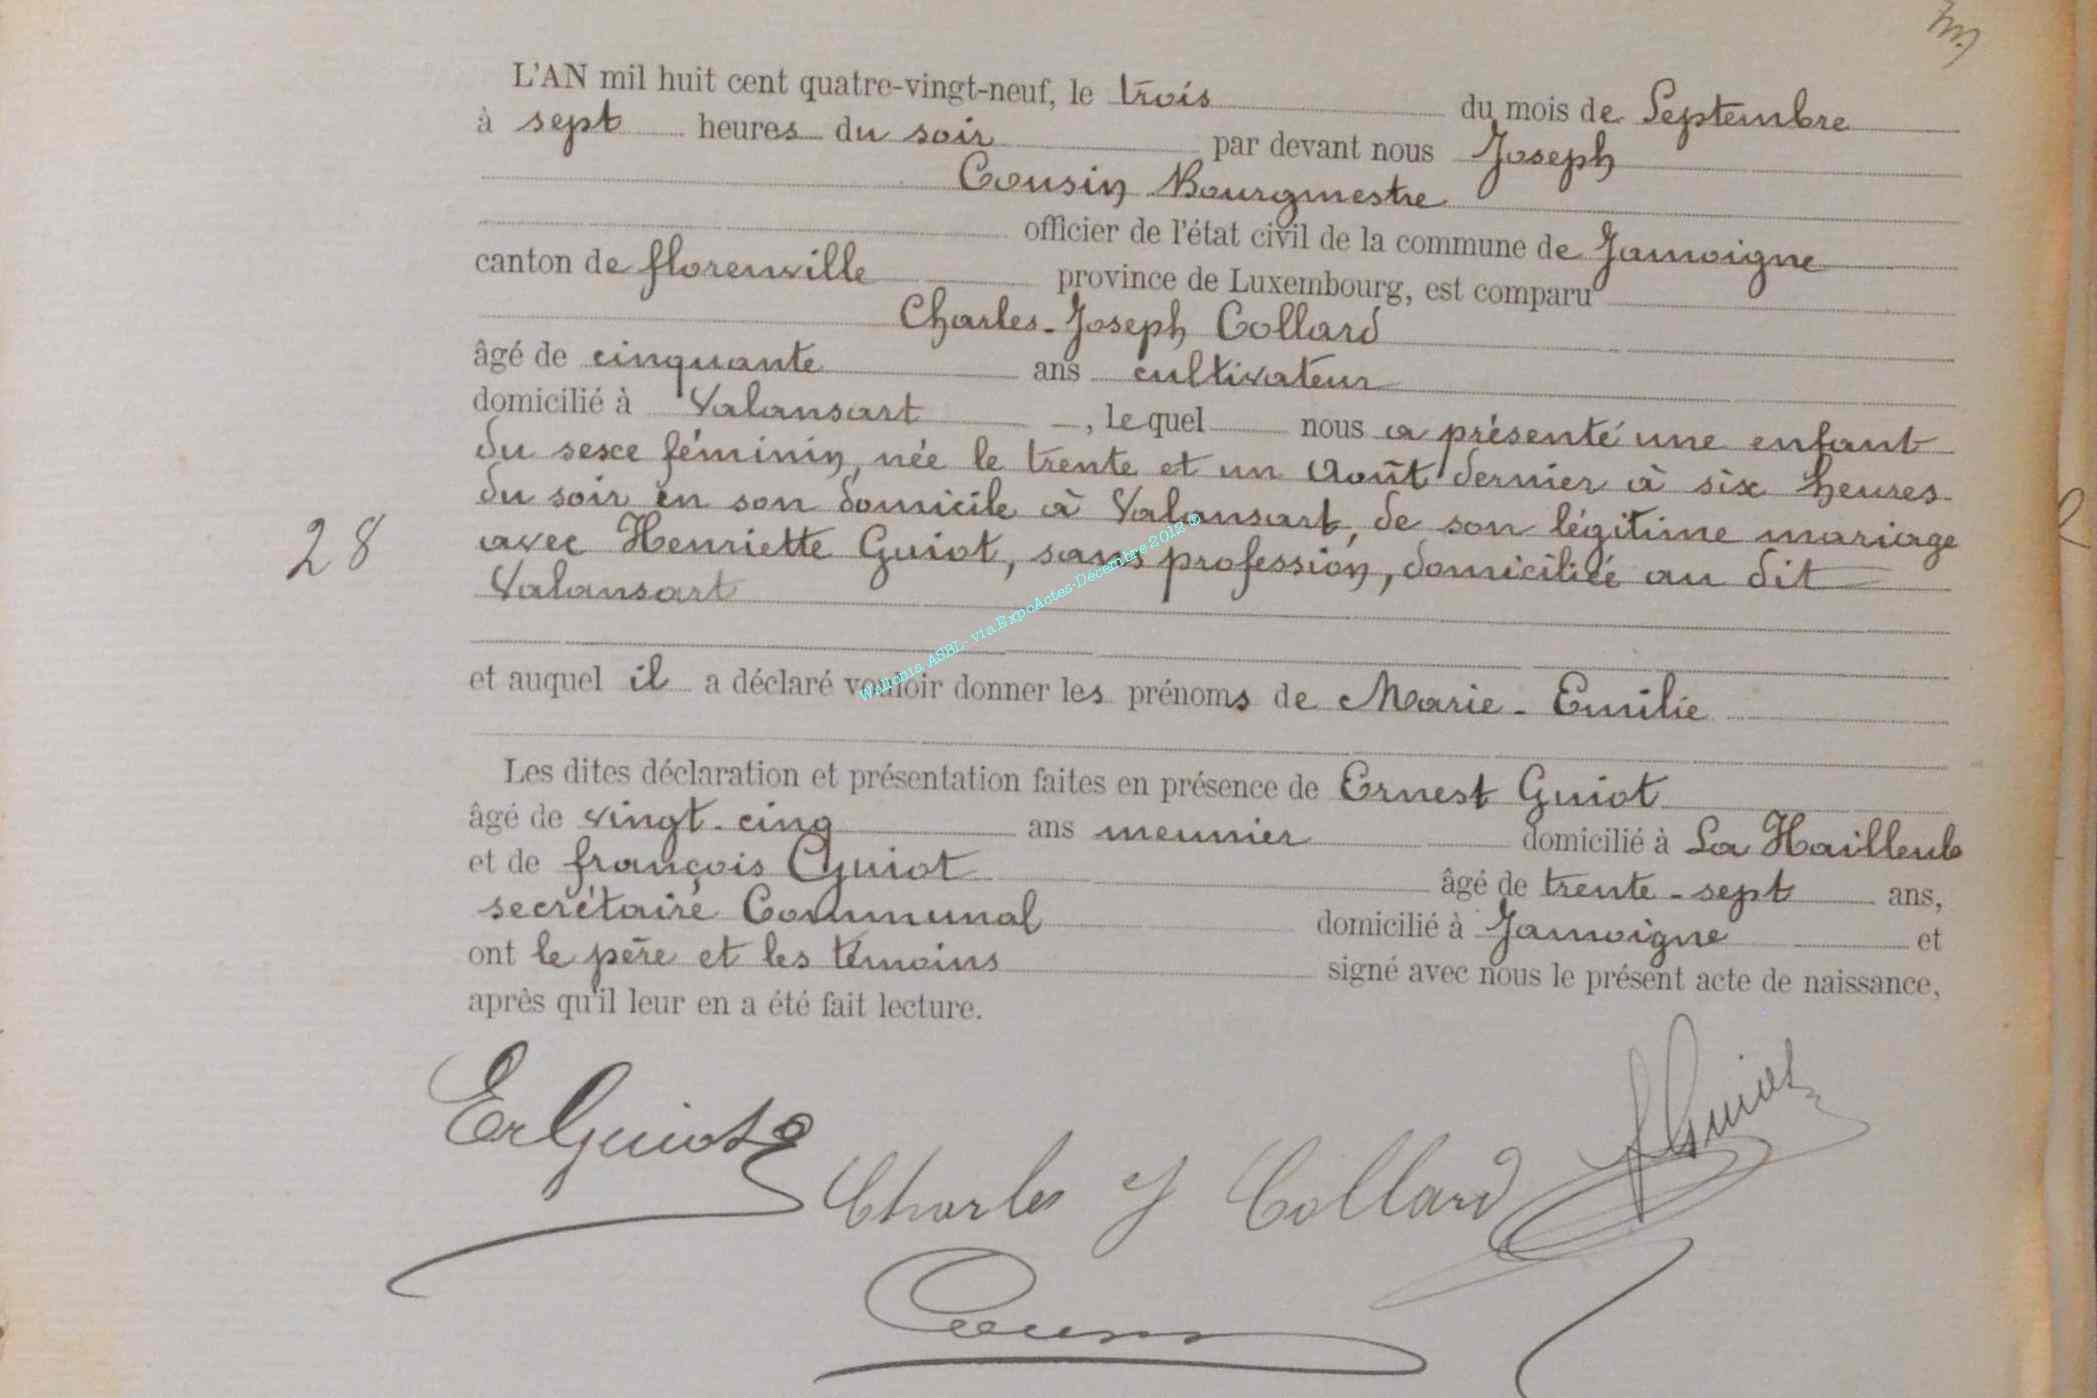 L'AN mil huit cent quatre-vingt-neuf, le trois du mois de Septembre
à sept heures du soir par devant nous Joseph
Cousin Bourgmestre
officier de l'état civil de la commune de Jamoigne
canton de florenville province de Luxembourg, est comparu
Charles-Joseph Collard
âgé de cinquante ans cultivateur
domicilié à Valansart, lequel nous a présenté une enfant
du sexe féminin, née le trente et un Août dernier à six heures
du soir en son domicile à Valansart, de son légitime mariage
avec Henriette Guiot, sans profession, domiciliée au dit
Valansart
28
et auquel il a déclaré vouloir donner les prénoms de Marie-Emilie
Les dites déclaration et présentation faites en présence de Ernest Guiot
âgé de vingt-cinq ans meunier domicilié à La Hailleule
et de françois Guiot âgé de trente-sept ans,
secrétaire Communal domicilié à Jamoigne et
ont le père et les témoins signé avec nous le présent acte de naissance,
après qu'il leur en a été fait lecture.
Wallonia, ASBL - via ExpoActes-Décembre 2012 ©
Er Guiot
Charles J Collard
f Guiot